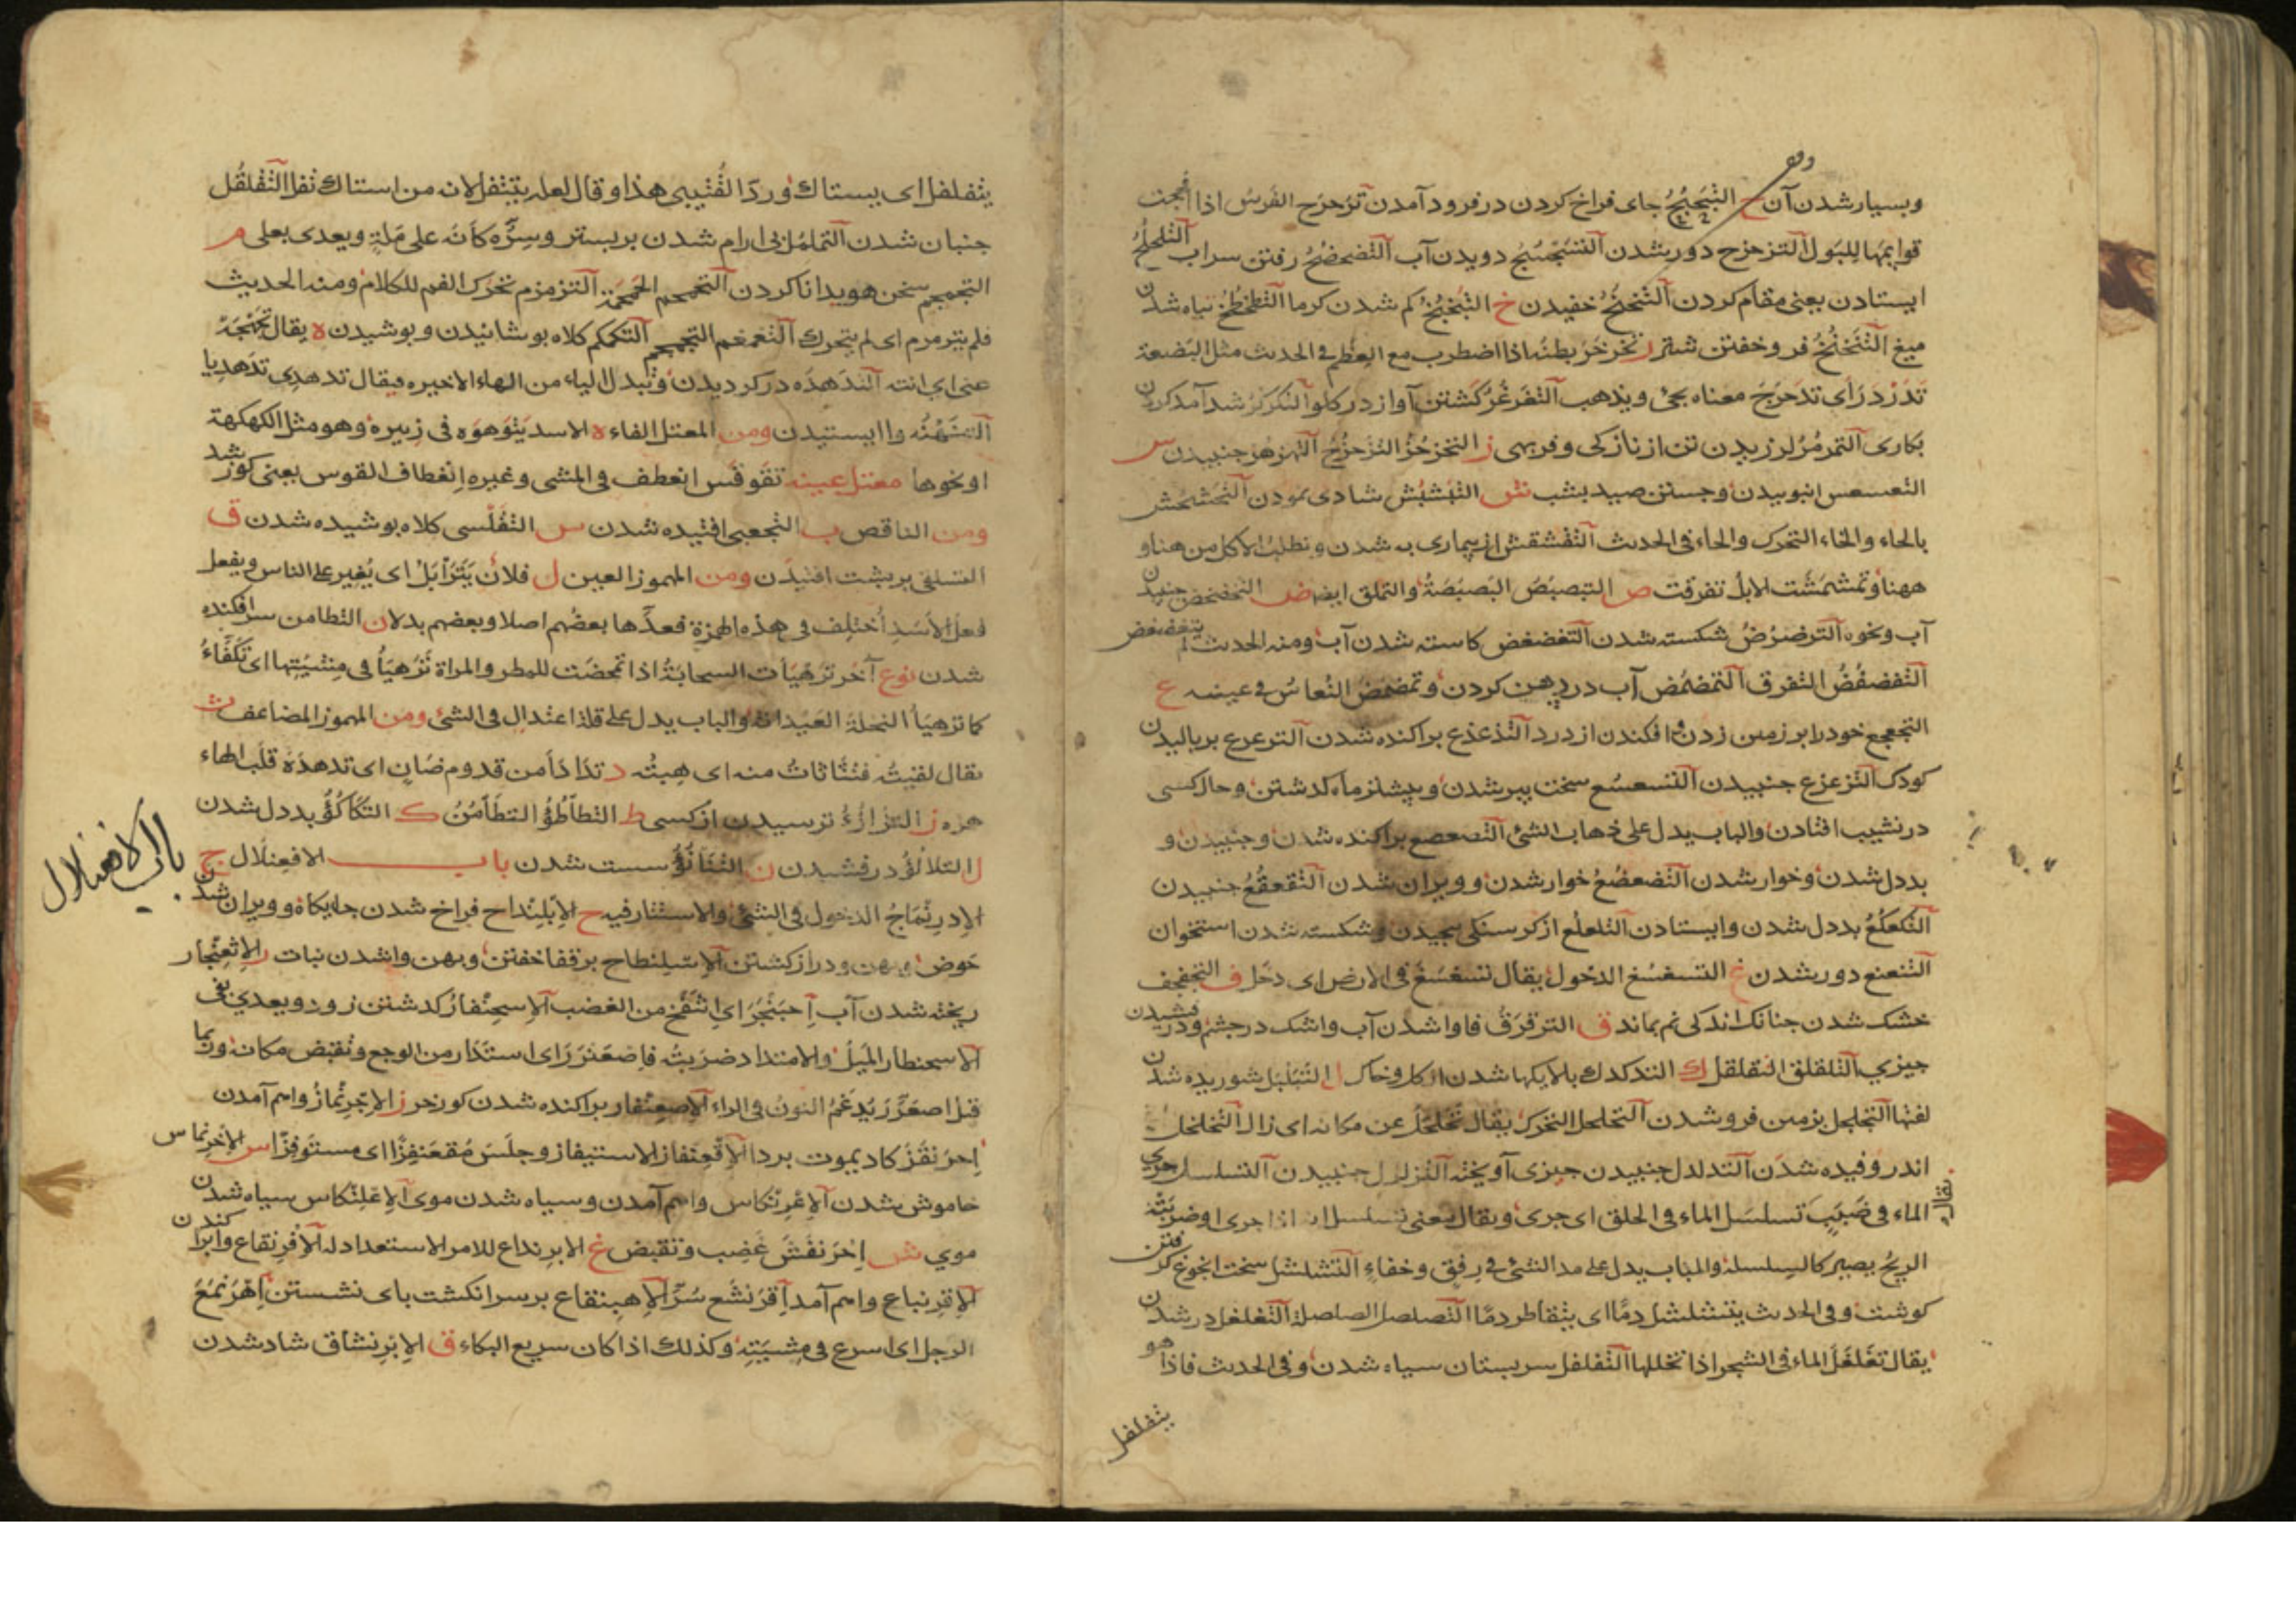 وبسیار شدن آن ح التبحبح جای فراخ کردن در فرود آمدن تزحزح الفرس اذا
قوایمها للبول التزحزح دور شدن دویدن آب التضحضح رفتن سراب التلحلح
ایستادن یعنی مقام کردن التنحنح خفیدن خ التبخبخ کم شدن کرما التطخطخ تباه شدن
میغ التنخنخ فرو خفتن شتر ر تخرخر بطنه اذا اضطرب مع العظم فی الحدیث مثل البضعة
تدردر ای تدحرج معناه یجئ ویذهب التغرغر کشتن آواز در کلو التکرکر
بکاری التمرمر لرزیدن تن از نازکی وفربهی ز التحزحز التزحزح التهزهز جنبیدن س
التعسعس انبوییدن وجستن صید بشب ش التبشبش شادی نمودن التخشخش
بالحاء والخاء التحرک والحاء فی الحدیث التقشقش از بیماری به شدن وتطلب الاکل من هنا و
ههنا وتمشمشت الابل تفرقت ص التبصبص البصبصة والتملق ایضا ض التخضخض جنبیدن
آب ونحوه الترضرض شکسته شدن التغضغض کاسته شدن آب ومنه الحدیث لم یتغضغض
التفضفض التفرق التمضمض آب در دهن کردن وتمضمض النعاس فی عینه ع
التجعجع خود را بر زمین زدن وافکندن از درد التذعذع پراکنده شدن الترعرع بربالیدن
کودک التزعزع جنبیدن التسعسع سخت پیر شدن وبیشتر ماه کذشتن وحال کسی
در نشیب افتادن والباب یدل علی ذهاب الشئ التصعصع پراکنده شدن وجنبیدن و
بددل شدن وخوار شدن التضعضع خوار شدن وویران شدن التقعقع جنبیدن
التکعکع بددل شدن وایستادن التلعلع از کرسنکی بیجیدن وشکسته شدن استخوان
التنعنع دور شدن غ التسغسغ الدخول یقال تسغسغ فی الارض ای دخل ف التجفجف
خشک شدن جنانک اندکی نم بماند ق الترقرق فاوا شدن آب واشک در جشم ودرفشیدن
جیزی التلقلق التقلقل ک التدکدک بالایکها شدن ل التبلبل شوریده شدن
التجلجل بزمین فرو شدن التحلحل التحرک یقال تحلحل عن مکانه ای زال التخلخل
اندر وفیده شدن التدلدل جنبیدن جیزی آویخته التزلزل جنبیدن التسلسل جری
الماء فی صبب تسلسل الماء فی الحلق ای جری ویقال یعنی تسلسل اذا جری او ضربته
الریح یصیر کالسلسلة والباب یدل علی مد الشئ فی رفق وخفاء التشلشل سخت
کوشت وفی الحدیث یتشلشل دما ای یتقاطر دما التصلصل الصلصلة التغلغل در شدن
یقال تغلغل الماء فی الشجر اذا تخللها التفلفل سر پستان سیاه شدن وفی الحدیث فاذا هو
یتفلفل
یقال
یتفلفل ای یستاک ورد القتیبی هذا وقال لعله یتتفل لان من استاک تفل التقلقل
جنبان شدن التململ بی ارام شدن بر بستر وسره کانه علی ملة ویعدی بعلی م
التجمجم سخن هویدا ناکردن التحمحم الحمحمة التزمزم تحرک الفم للکلام ومنه الحدیث
فلم یترمرم ای لم یتحرک التغمغم التجمجم التکمکم کلاه بوشانیدن وبوشیدن ه یقال
عنی ای انته التدهده در کردیدن وتبدل الیاء من الهاء الاخیره فیقال تدهدی تدهدیا
وا ایستیدن ومن المعتل الفاء ه الاسد یتوهوه فی زبیره وهو مثل الکهکهة
او نحوها معتل عینه تقوقس انعطف فی المشی وغیره انعطاف القوس یعنی کوز شد
ومن الناقص ب التجعبی افتیده شدن س التقلسی کلاه بوشیده شدن ق
التسلقی بر بشت افتیدن ومن المهموز العین ل فلان یتزابل ای یغیر علی الناس ویفعل
فعل الاسد اختلف فی هذه الهمزة فعدها بعضهم اصلا وبعضهم بدلا ن التطامن سر افکنده
شدن نوع آخر ترهیات السحابة اذا تمحضت للمطر والمراة ترهیا فی مشیتها ای تکفاء
کما ترهیا النخلة العیدانة والباب یدل علی قلة اعتدال فی الشئ ومن المهموز المضاعف ث
یقال لقیته فتثاثات منه ای هبته د تداداَ من قدوم ضان ای تدهده قلب الهاء
همزه ز التزازؤ ترسیدن از کسی ط التطأطؤ التطأمن ک التکأکؤ بددل شدن
ل التلالؤ درفشیدن ن التنانؤ سست شدن باب الافعنلال ج
الادرنماج الدخول فی الشئ والاستتار فیه ح الابلنداح فراخ شدن جایکاه وویران شدن
حوض وبهن ودراز کشتن الاسلنطاح بر قفا خفتن وبهن واشدن نبات ر الاثعنجار
ریخته شدن آب احبنجر ای انتفخ من الغضب الاسحنفار کذشتن زود ویعدی بفی
الاسحنطار المیل والامتداد ضربته فاصعنرر ای استدار من الوجع وتقبض مکانه وربما
قیل اصعرر بدغم النون فی الراء الاصعنفار براکنده شدن کورخر ز الاجرنماز واهم آمدن
احرنقز کاد یموت بردا الاقعنفاز الاستیفاز وجلس مقعنفزا ای مستوفزا س الاخرنماس
خاموش شدن الاعرنکاس واهم آمدن وسیاه شدن موی الاعلنکاس سیاه شدن
موی ش احرنفش غضب وتقبض ع الابرنداع للامر الاستعداد له الافرنقاع وابراکندن
الاقرنباع واهم آمدن اقرنشع سر الاهبنقاع بر سر انکشت بای نشستن اهرنمع
الرجل ای اسرع فی مشیته وکذلک اذا کان سریع البکاء ق الابرنشاق شاد شدن
باب الافعنلال